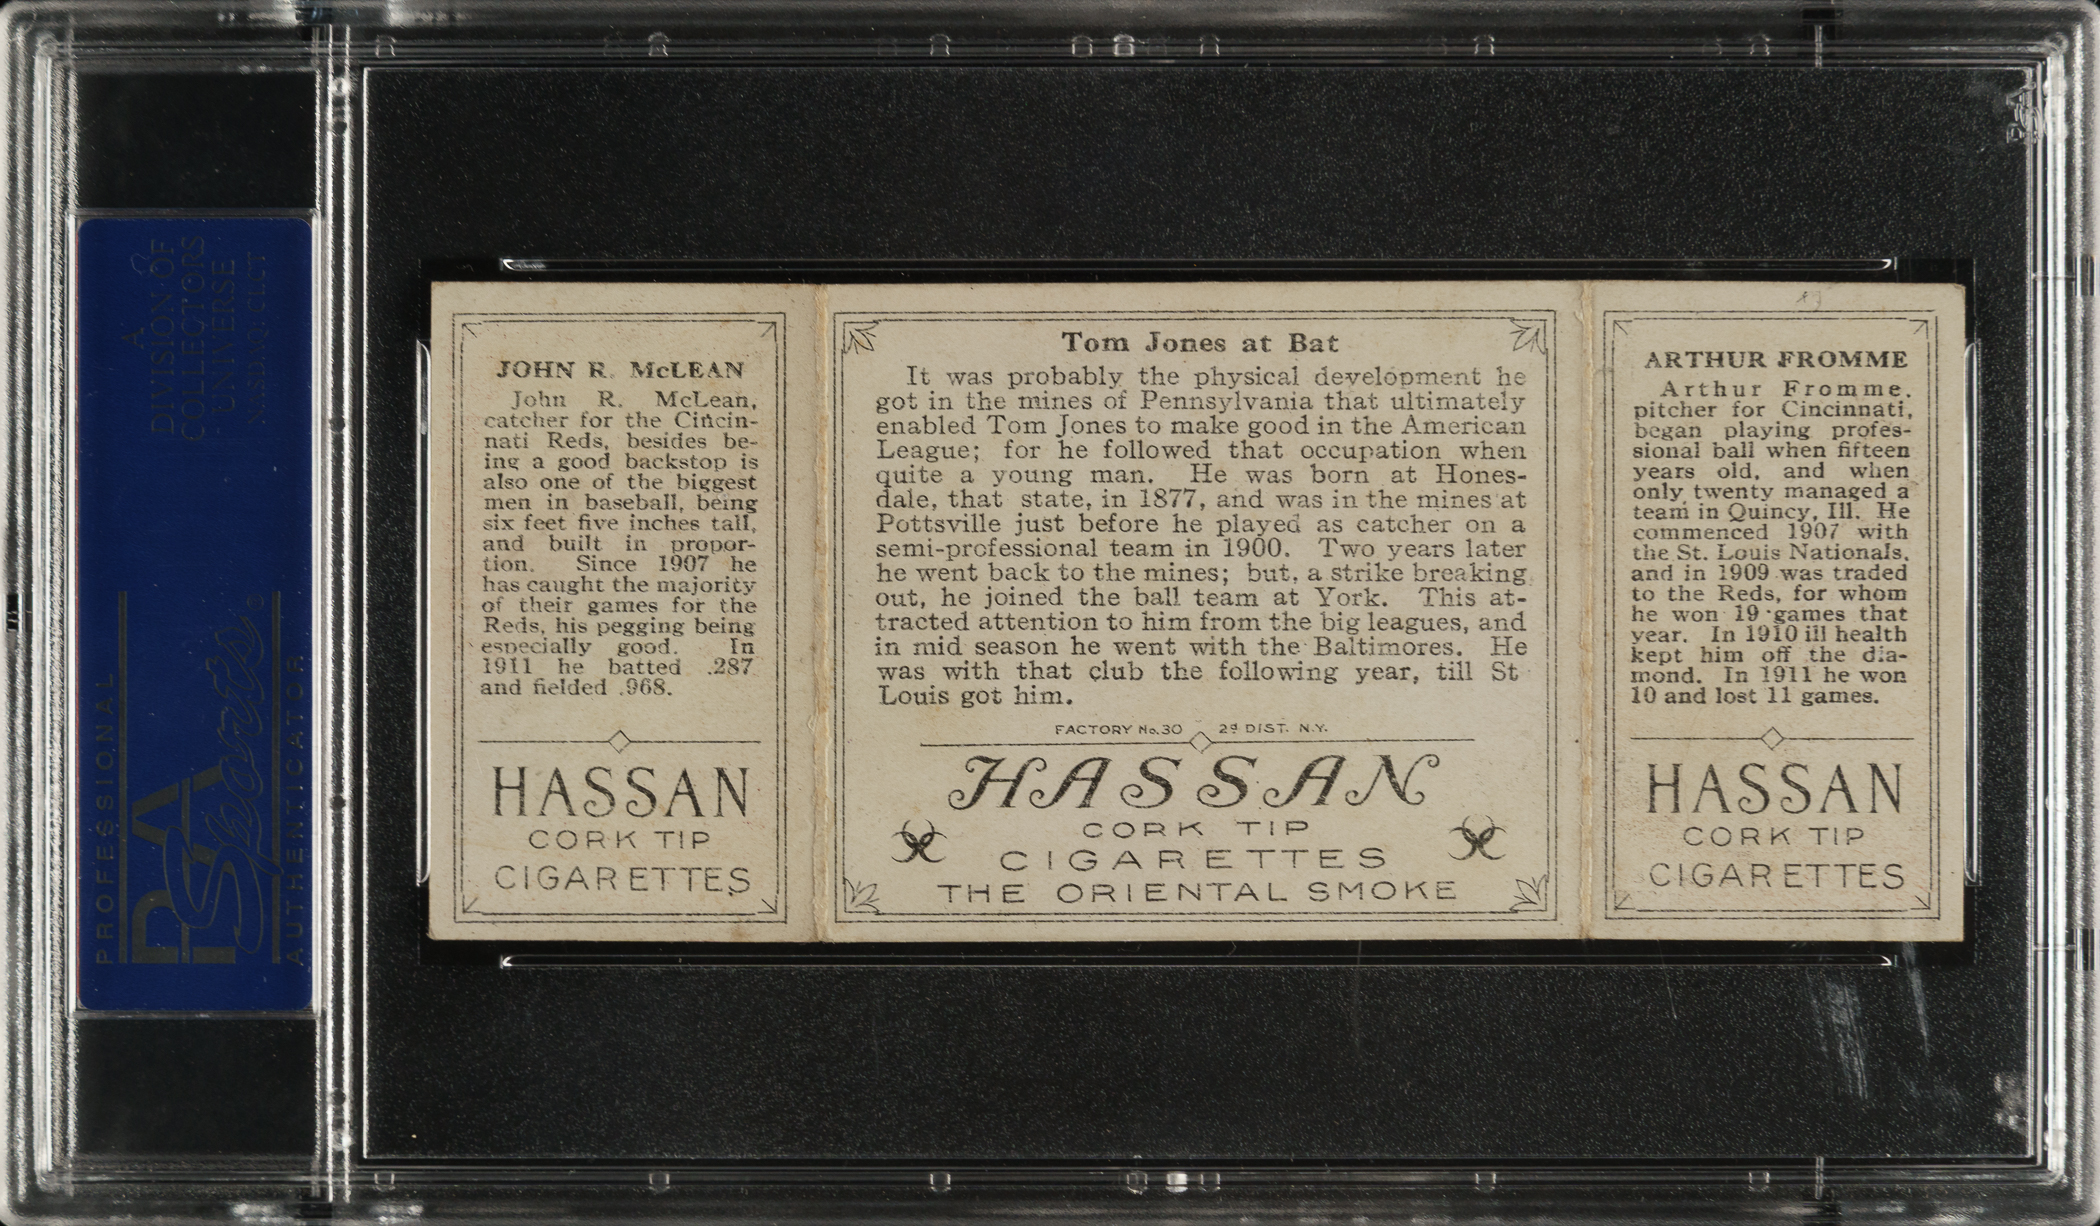 A
DIVISION OF
COLLECTORS
UNIVERSE
NASDAQ: CLCT
PROFESSIONAL
PSA
Sports®
AUTHENTICATOR
JOHN R. McLEAN
John R. McLean,
catcher for the Cincin-
nati Reds, besides be-
ing a good backstop is
also one of the biggest
men in baseball, being
six feet five inches tall,
and built in propor-
tion. Since 1907 he
has caught the majority
of their games for the
Reds, his pegging being
especially good. In
1911 he batted .287
and fielded .968.
HASSAN
CORK TIP
CIGARETTES
Tom Jones at Bat
It was probably the physical development he
got in the mines of Pennsylvania that ultimately
enabled Tom Jones to make good in the American
League; for he followed that occupation when
quite a young man. He was born at Hones-
dale, that state, in 1877, and was in the mines at
Pottsville just before he played as catcher on a
semi-professional team in 1900. Two years later
he went back to the mines; but, a strike breaking
out, he joined the ball team at York. This at-
tracted attention to him from the big leagues, and
in mid season he went with the Baltimores. He
was with that club the following year, till St
Louis got him.
FACTORY No.30 2d DIST. N.Y.
HASSAN
CORK TIP
CIGARETTES
THE ORIENTAL SMOKE
ARTHUR FROMME
Arthur Fromme,
pitcher for Cincinnati,
began playing profes-
sional ball when fifteen
years old, and when
only twenty managed a
team in Quincy, Ill. He
commenced 1907 with
the St. Louis Nationals,
and in 1909 was traded
to the Reds, for whom
he won 19 games that
year. In 1910 ill health
kept him off the dia-
mond. In 1911 he won
10 and lost 11 games.
HASSAN
CORK TIP
CIGARETTES
PSA